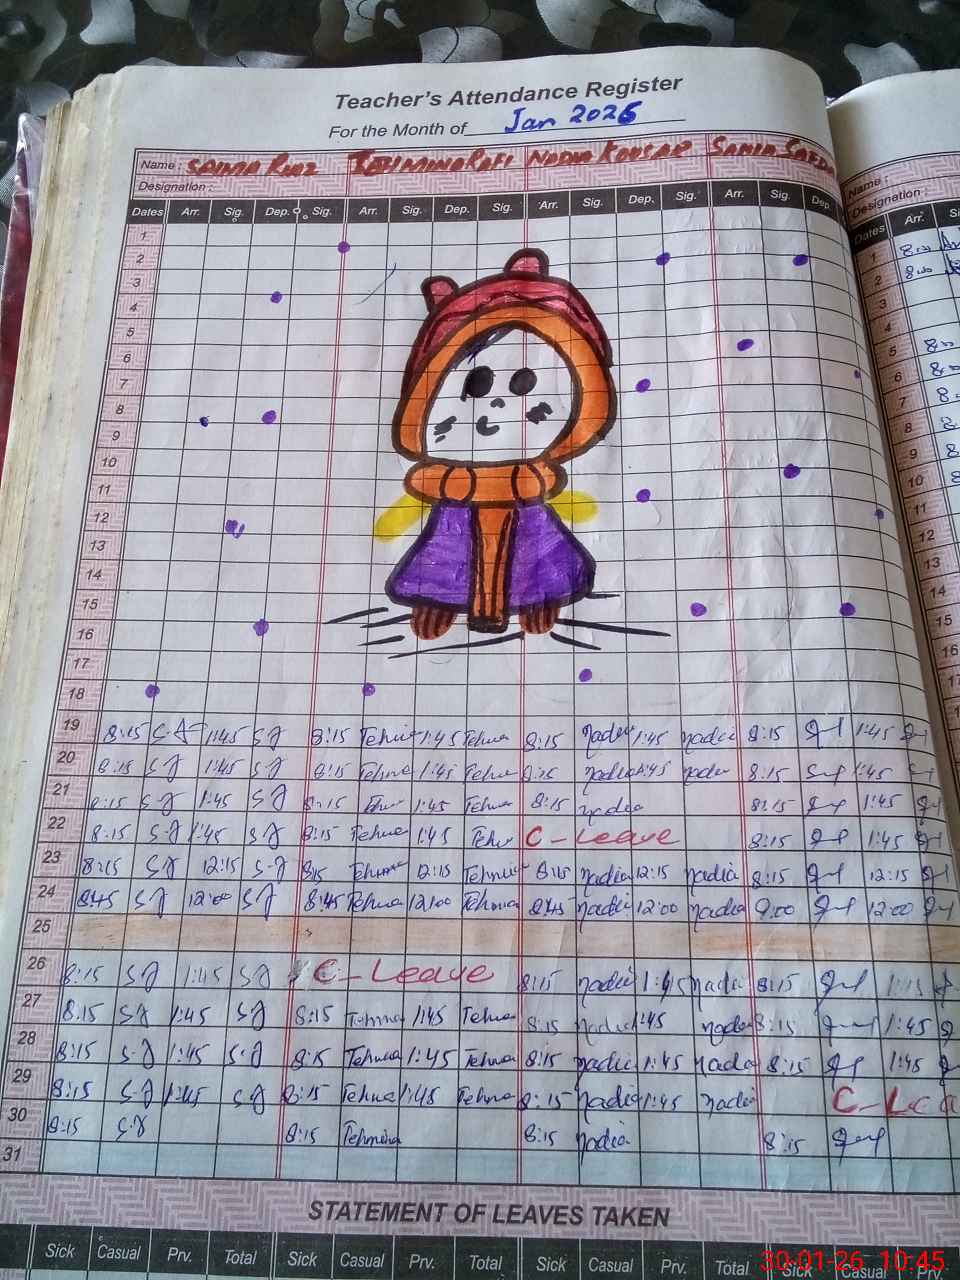 Teacher's Attendance Register
For the Month of Jan 2026
Name : SAIMA Riaz TEHMINA RAFI NADIA KOUSAR SANIA SAEED Name :
Designation : Designation :
Dates Arr. Sig. Dep. Sig. Arr. Sig. Dep. Sig. Arr. Sig. Dep. Sig. Arr. Sig. Dep. Dates Arr.
1 1 8:00
2 2 8:00
3 3
4 4
5 5 8:00
6 6
7 7
8 8
9 9
10 10
11 11
12 12
13 13
14 14
15 15
16 16
17 17
18
19 8:15 1:45 SJ 8:15 1:45 Tehmina 8:15 Nadia 1:45 Nadia 8:15 1:45
20 8:15 SJ 1:45 SJ 8:15 Tehmina 1:45 8:15 Nadia 1:45 Nadia 8:15 1:45
21 8:15 SJ 1:45 SJ 8:15 1:45 Tehmina 8:15 Nadia 8:15 1:45
22 8:15 SJ 1:45 SJ 8:15 Tehmina 1:45 C-Leave 8:15 1:45
23 8:15 SJ 12:15 SJ 8:15 Tehmina 12:15 Tehmina 8:15 Nadia 12:15 Nadia 8:15 12:15
24 8:45 SJ 12:00 SJ 8:45 Tehmina 12:00 Tehmina 8:45 Nadia 12:00 Nadia 9:00 12:00
25
26 8:15 SJ 1:45 SJ C-Leave 8:15 Nadia 1:45 Nadia 8:15
27 8:15 SJ 1:45 SJ 8:15 Tehmina 1:45 Tehmina 8:15 Nadia 1:45 Nadia 8:15 1:45
28 8:15 SJ 1:45 SJ 8:15 Tehmina 1:45 Tehmina 8:15 Nadia 1:45 Nadia 8:15 1:45
29 8:15 SJ 1:45 SJ 8:15 Tehmina 1:45 Tehmina 8:15 Nadia 1:45 Nadia C-Lea
30 8:15 SJ 8:15 Tehmina 8:15 Nadia 8:15
31
STATEMENT OF LEAVES TAKEN
Sick Casual Prv. Total Sick Casual Prv. Total Sick Casual Prv. Total Sick Casual Prv.
30-01-26 10:45